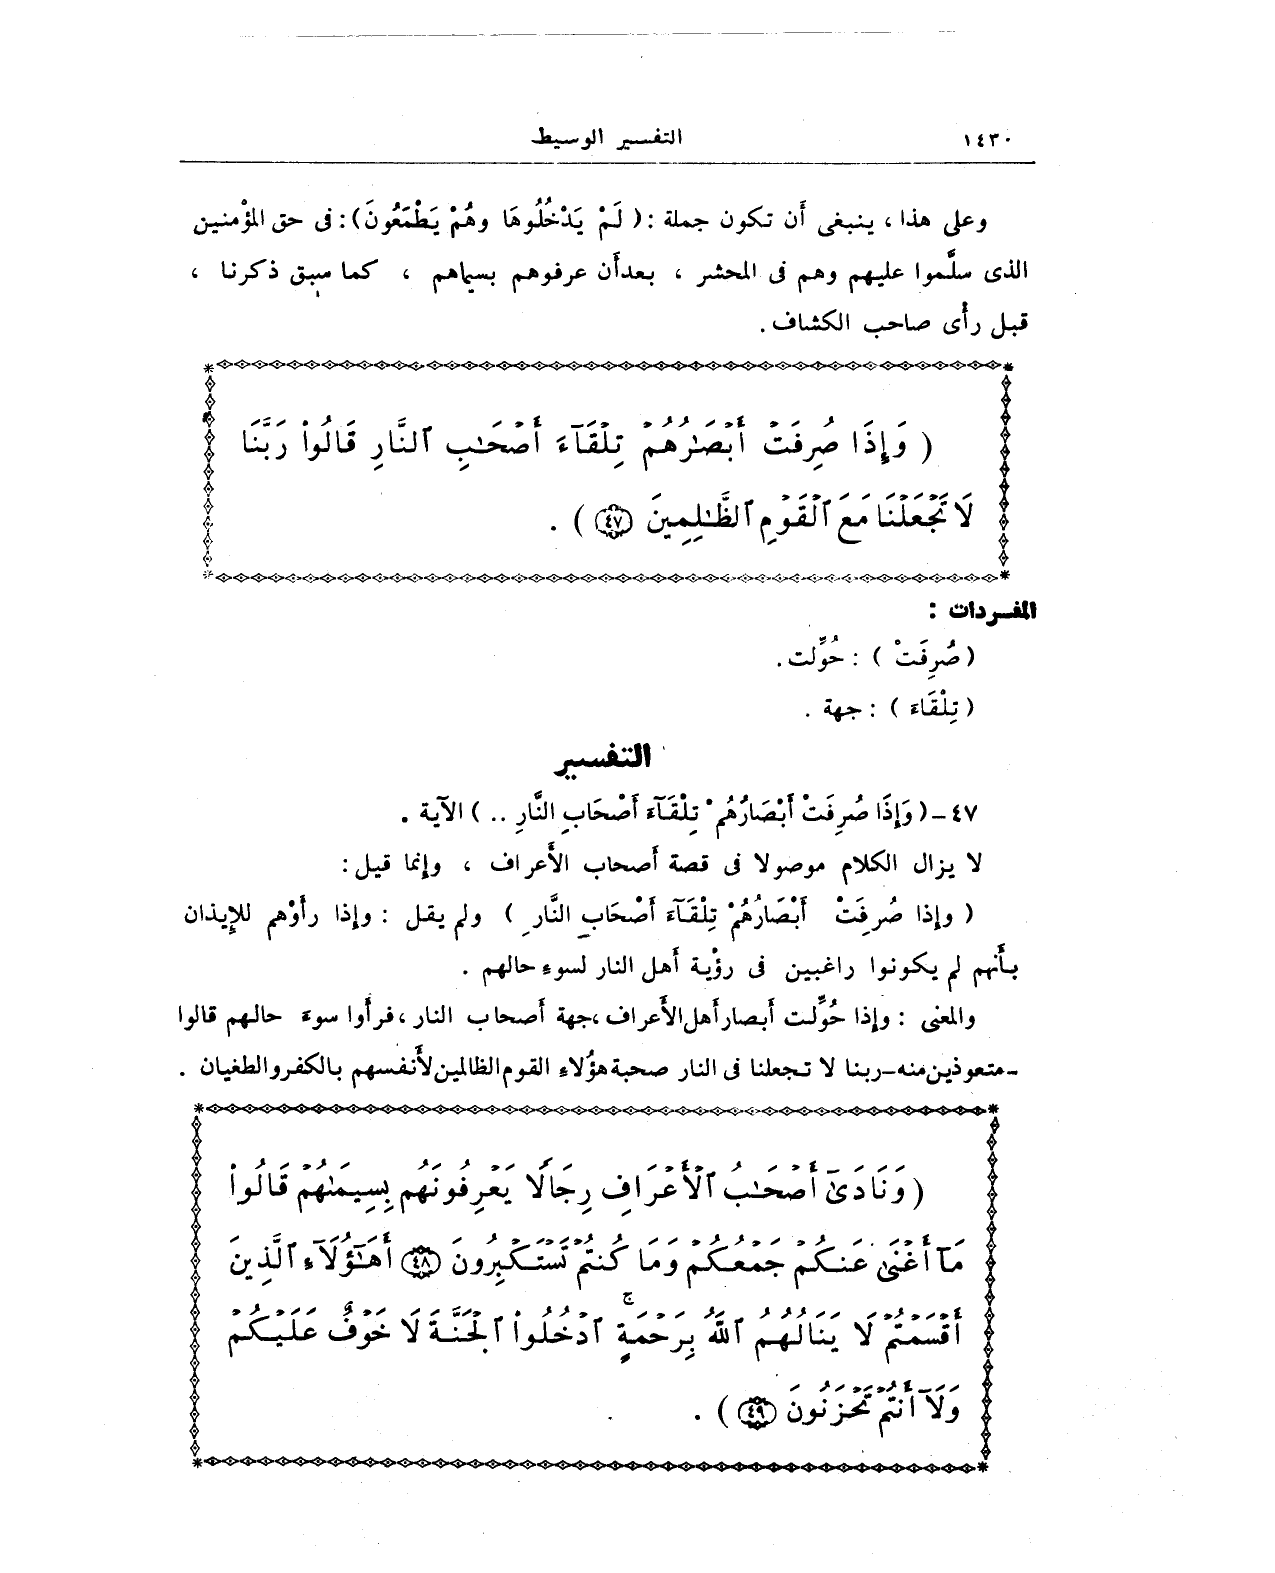 ١٤٣٠ التفسير الوسيط
وعلى هذا ، ينبغى أن تكون جملة : ( لَمْ يَدْخُلُوهَا وهُمْ يَطْمَعُونَ ) : فى حق المؤْمنين
الذى سلَّموا عليهم وهم فى المحشر ، بعدأن عرفوهم بسيماهم ، كما سبق ذكرنا ،
قبل رأْى صاحب الكشاف .
( وَإِذَا صُرِفَتْ أَبْصَٰرُهُمْ تِلْقَآءَ أَصْحَٰبِ ٱلنَّارِ قَالُوا۟ رَبَّنَا
لَا تَجْعَلْنَا مَعَ ٱلْقَوْمِ ٱلظَّٰلِمِينَ ٤٧ ) .
المفردات :
( صُرِفَتْ ) : حُوِّلت .
( تِلْقَاءَ ) : جهة .
التفسير
٤٧ - ( وَإِذَا صُرِفَتْ أَبْصَارُهُمْ تِلْقَآءَ أَصْحَابِ النَّارِ .. ) الآية .
لا يزال الكلام موصولا فى قصة أصحاب الأَعراف ، وإنما قيل :
( وإذا صُرِفَتْ أَبْصَارُهُمْ تِلْقَآءَ أَصْحَابِ النَّارِ ) ولم يقل : وإذا رأَوْهم للإِيذان
بأَنهم لم يكونوا راغبين فى رؤْية أهل النار لسوءِ حالهم .
والمعنى : وإذا حُوِّلت أبصار أهل الأَعراف ، جهة أصحاب النار ، فرأَوا سوءَ حالهم قالوا
- متعوذين منه - ربنا لا تجعلنا فى النار صحبة هؤُلاءِ القوم الظالمين لأَنفسهم بالكفر والطغيان .
( وَنَادَىٰٓ أَصْحَٰبُ ٱلْأَعْرَافِ رِجَالًا يَعْرِفُونَهُم بِسِيمَٰهُمْ قَالُوا۟
مَآ أَغْنَىٰ عَنكُمْ جَمْعُكُمْ وَمَا كُنتُمْ تَسْتَكْبِرُونَ ٤٨ أَهَٰٓؤُلَآءِ ٱلَّذِينَ
أَقْسَمْتُمْ لَا يَنَالُهُمُ ٱللَّهُ بِرَحْمَةٍ ۚ ٱدْخُلُوا۟ ٱلْجَنَّةَ لَا خَوْفٌ عَلَيْكُمْ
وَلَآ أَنتُمْ تَحْزَنُونَ ٤٩ ) .